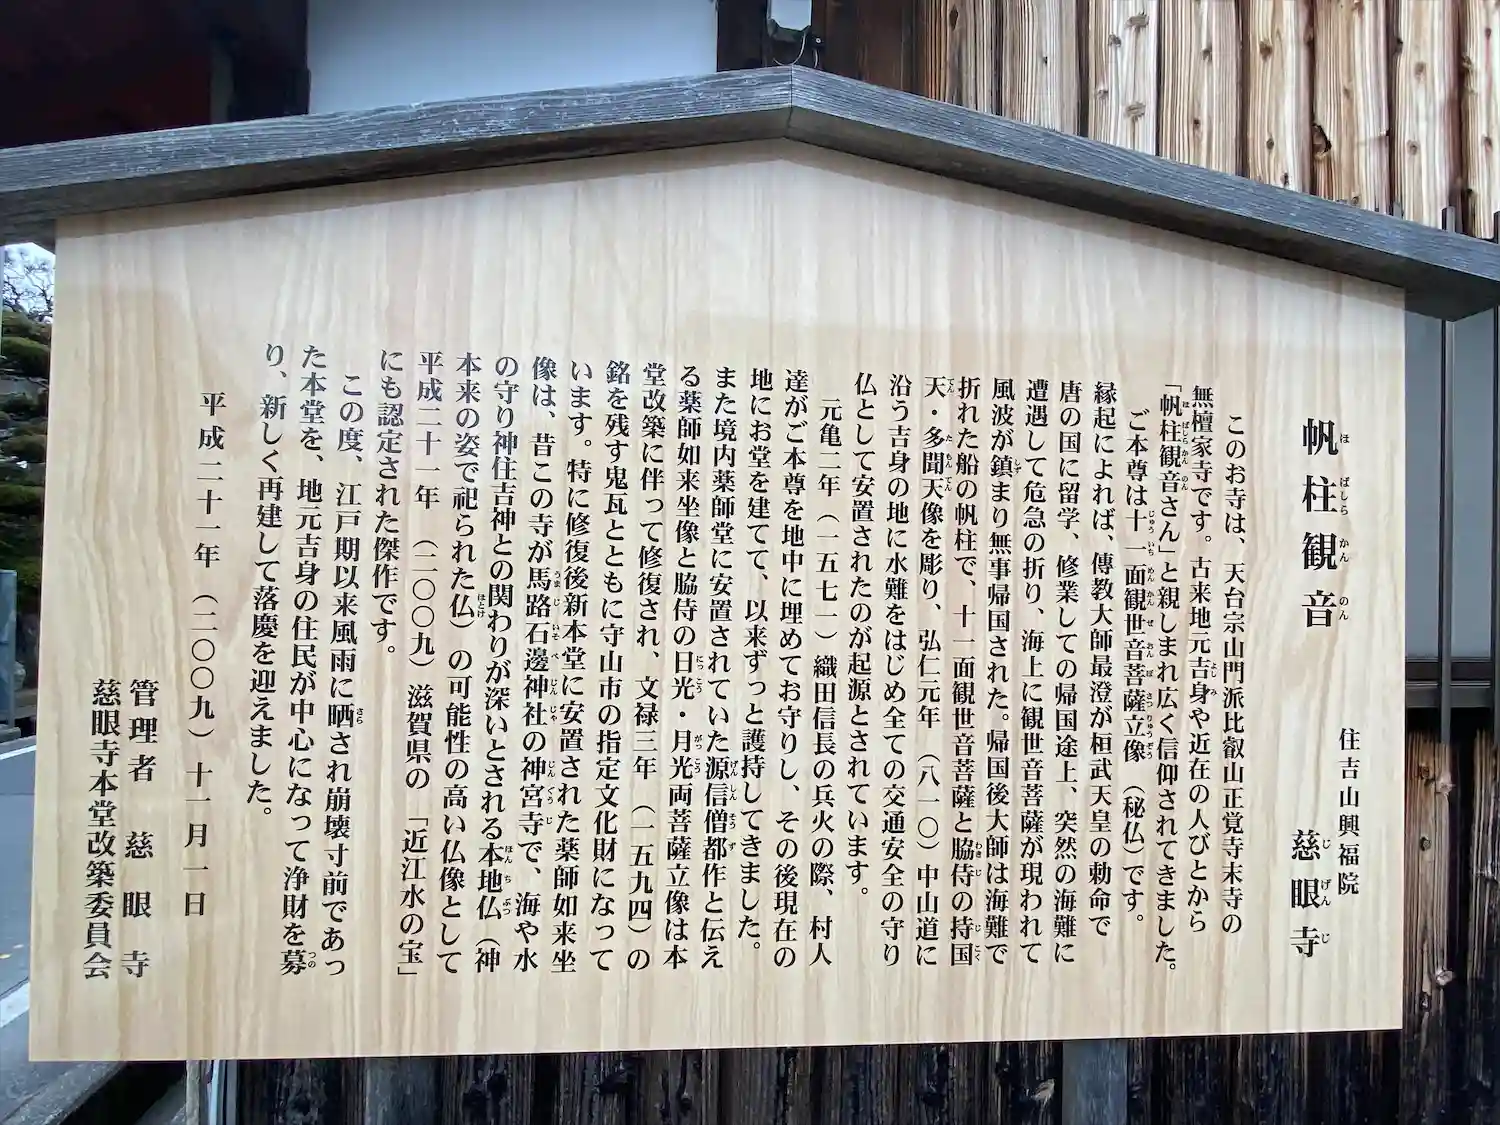 帆柱観音
住吉山興福院
慈眼寺
このお寺は、天台宗山門派比叡山正覚寺末寺の
無檀家寺です。古来地元吉身や近在の人びとから
「帆柱観音さん」と親しまれ広く信仰されてきました。
ご本尊は十一面観世音菩薩立像（秘仏）です。
縁起によれば、傳教大師最澄が桓武天皇の勅命で
唐の国に留学、修業しての帰国途上、突然の海難に
遭遇して危急の折り、海上に観世音菩薩が現われて
風波が鎮まり無事帰国された。帰国後大師は海難で
折れた船の帆柱で、十一面観世音菩薩と脇侍の持国
天・多聞天像を彫り、弘仁元年（八一〇）中山道に
沿う吉身の地に水難をはじめ全ての交通安全の守り
仏として安置されたのが起源とされています。
元亀二年（一五七一）織田信長の兵火の際、村人
達がご本尊を地中に埋めてお守りし、その後現在の
地にお堂を建てて、以来ずっと護持してきました。
また境内薬師堂に安置されていた源信僧都作と伝え
る薬師如来坐像と脇侍の日光・月光両菩薩立像は本
堂改築に伴って修復され、文禄三年（一五九四）の
銘を残す鬼瓦とともに守山市の指定文化財になって
います。特に修復後新本堂に安置された薬師如来坐
像は、昔この寺が馬路石邊神社の神宮寺で、海や水
の守り神住吉神との関わりが深いとされる本地仏（神
本来の姿で祀られた仏）の可能性の高い仏像として
平成二十一年（二〇〇九）滋賀県の「近江水の宝」
にも認定された傑作です。
この度、江戸期以来風雨に晒され崩壊寸前であっ
た本堂を、地元吉身の住民が中心になって浄財を募
り、新しく再建して落慶を迎えました。
平成二十一年（二〇〇九）十一月一日
管理者　慈眼寺
慈眼寺本堂改築委員会